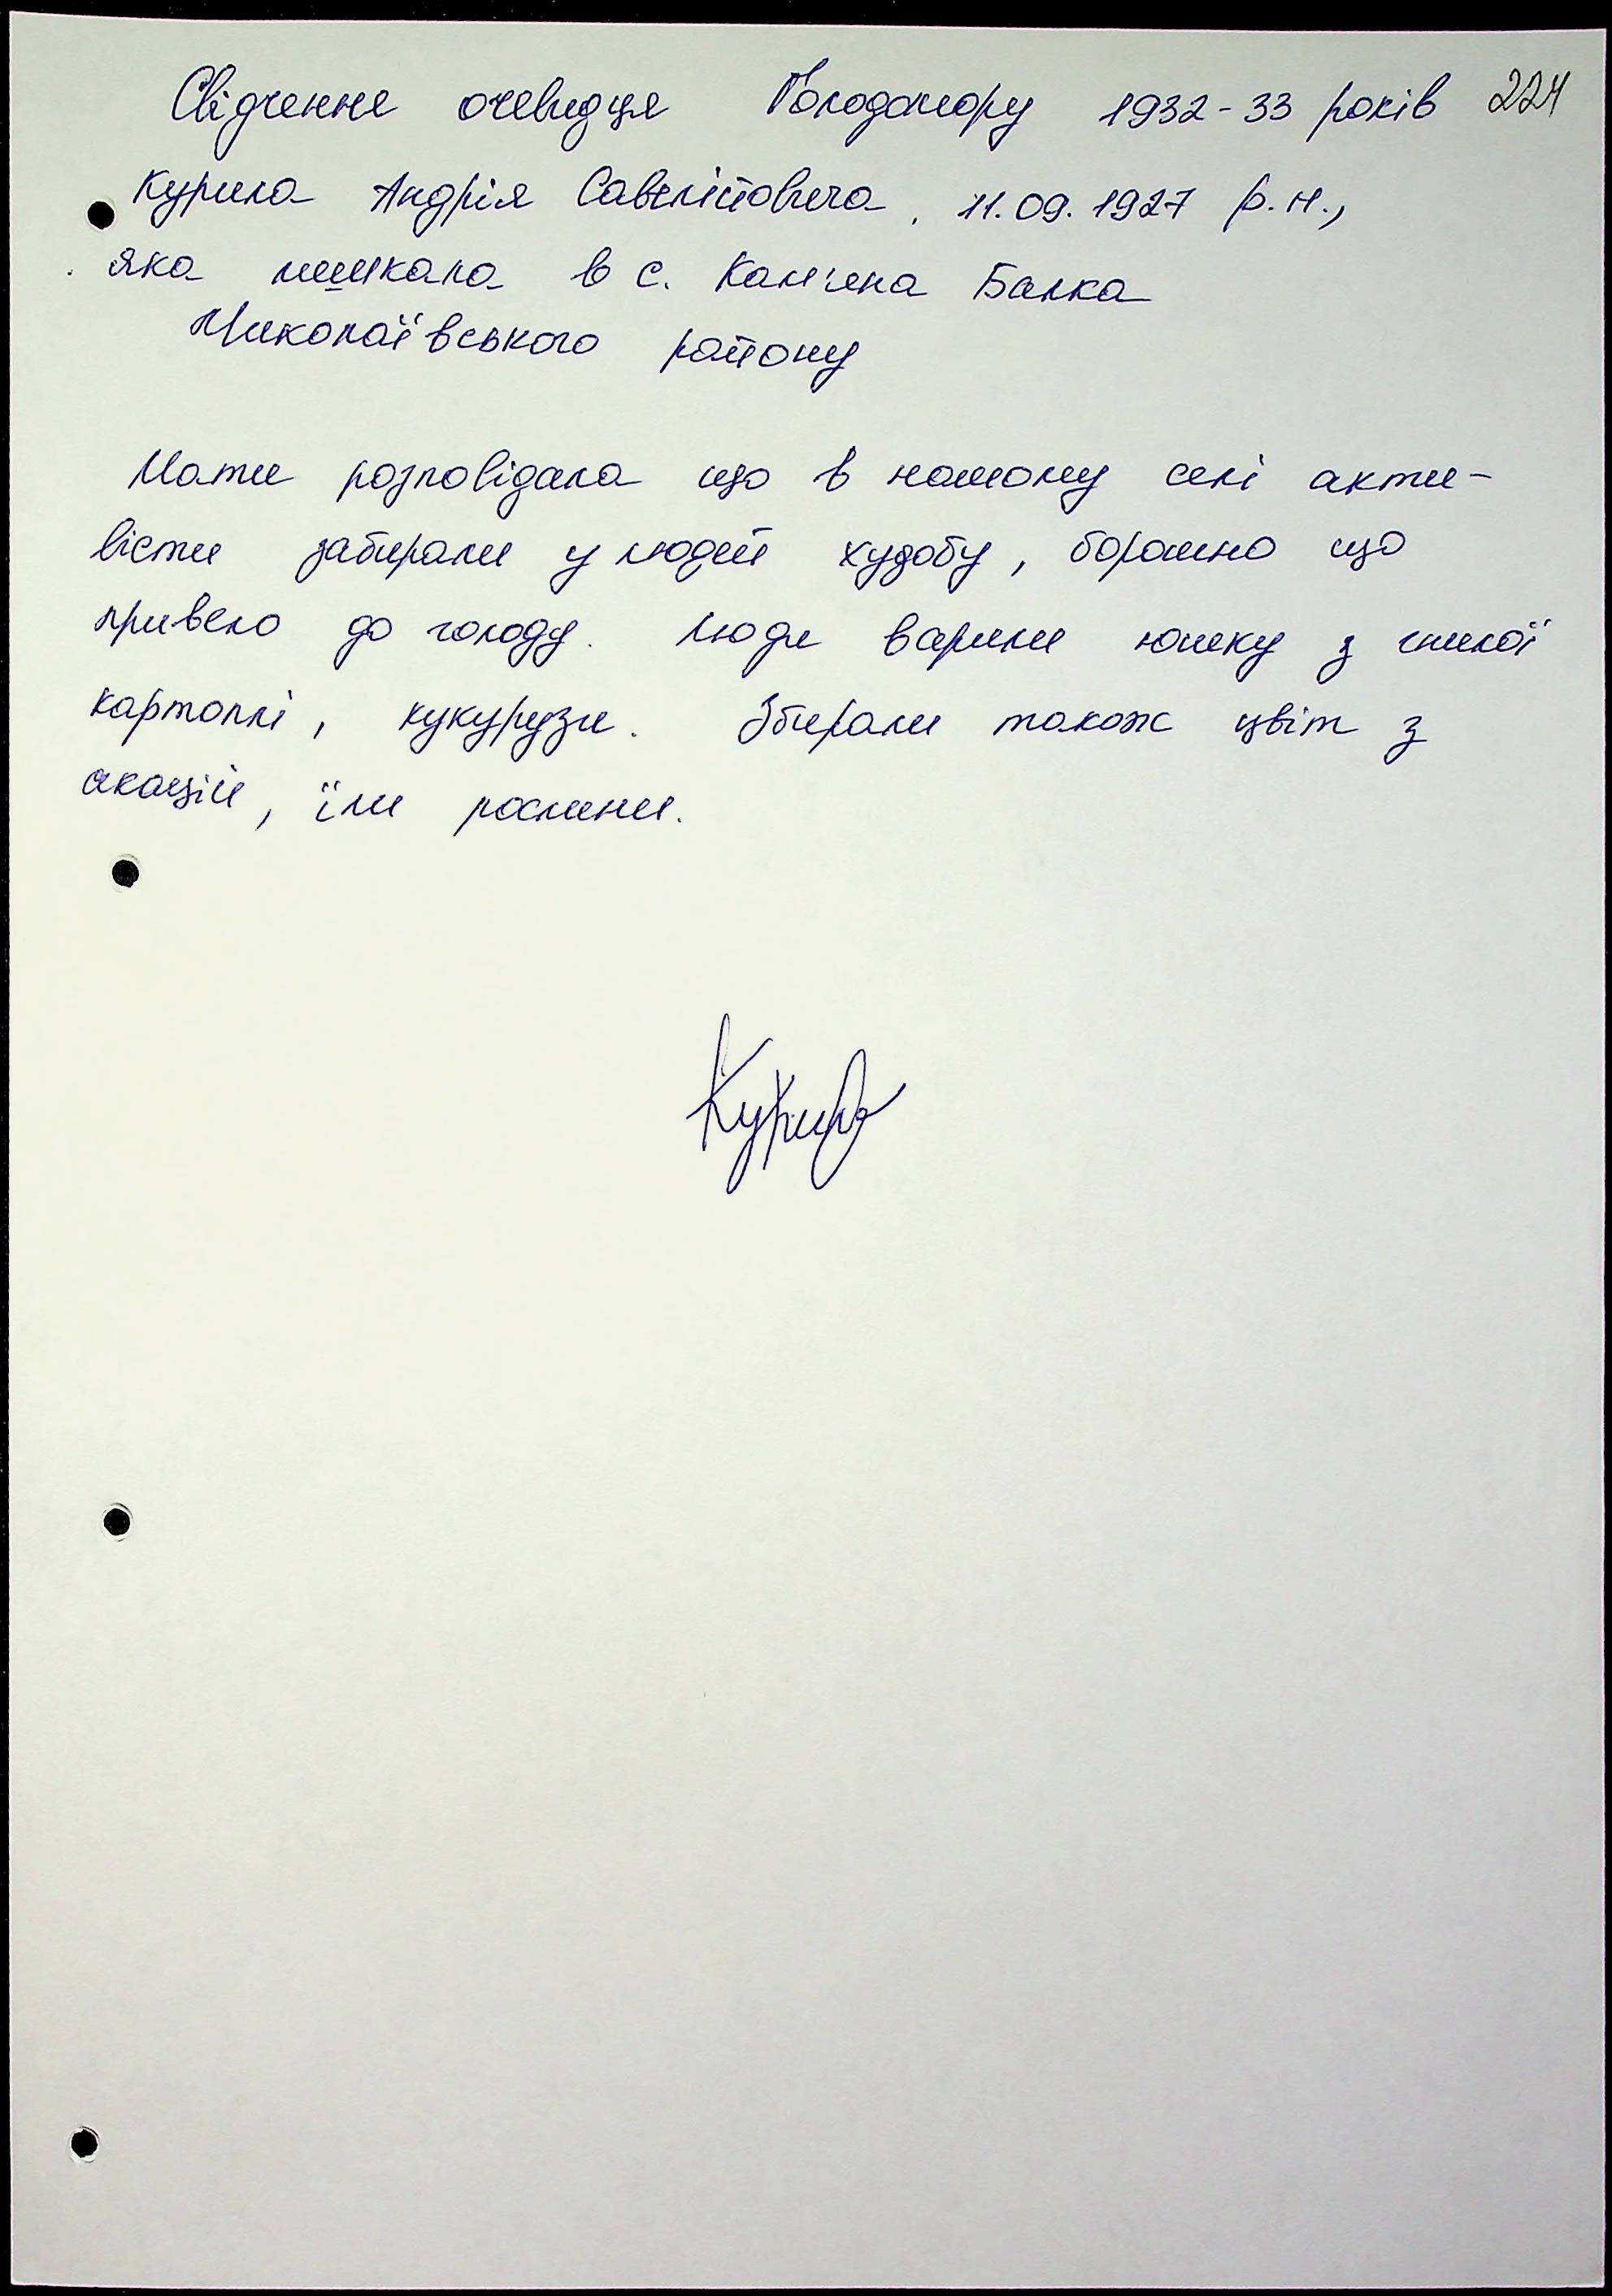 Свідчення очевидця Голодомору 1932-33 років 224
Курила Андрія Савелійовича, 11.09.1927 р.н.,
яка мешкала в с. Кам'яна Балка
Миколаївського району
Мати розповідала що в нашому селі акти-
вісти забирали у людей худобу, борошно що
привело до голоду. Люди варили юшку з гнилої
картоплі, кукурузи. Збирали також цвіт з
акацій, їли рослини.
Курило